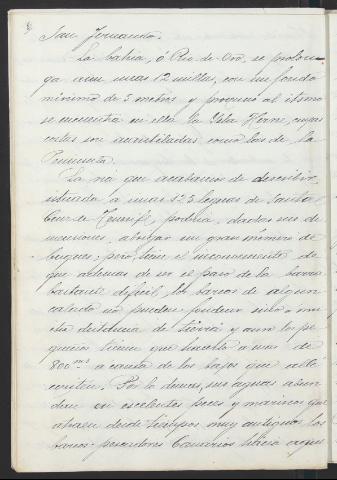 San Fernando.
La bahía, ó Rio de Oro, se prolon-
ga aun unas 12 millas, con un fondo
mínimo de 3 metros y proximo al itsmo
se encuentra en ella la Isla Herne, cuyas
costas son acantiladas como las de la
Peninsula.
La ria que acabamos de describir,
situada a unas 125 leguas de Santa
Cruz de Tenerife, podria, dadas sus di-
mensiones, abrigar un gran número de
buques; pero tiene el inconveniente de
que ademas de ser el paso de la barra
bastante dificil, los barcos de algun
calado no pueden fondear sino a mu-
cha distancia de tierra y aun los pe-
queños tienen que hacerlo a unos de
800 ms a causa de los bajos que alli
existen. Por lo demas, sus aguas abun-
dan en escelentes peces y mariscos que
atraen desde tiempos muy antiguos los
barcos pescadores Canarios hácia aquel